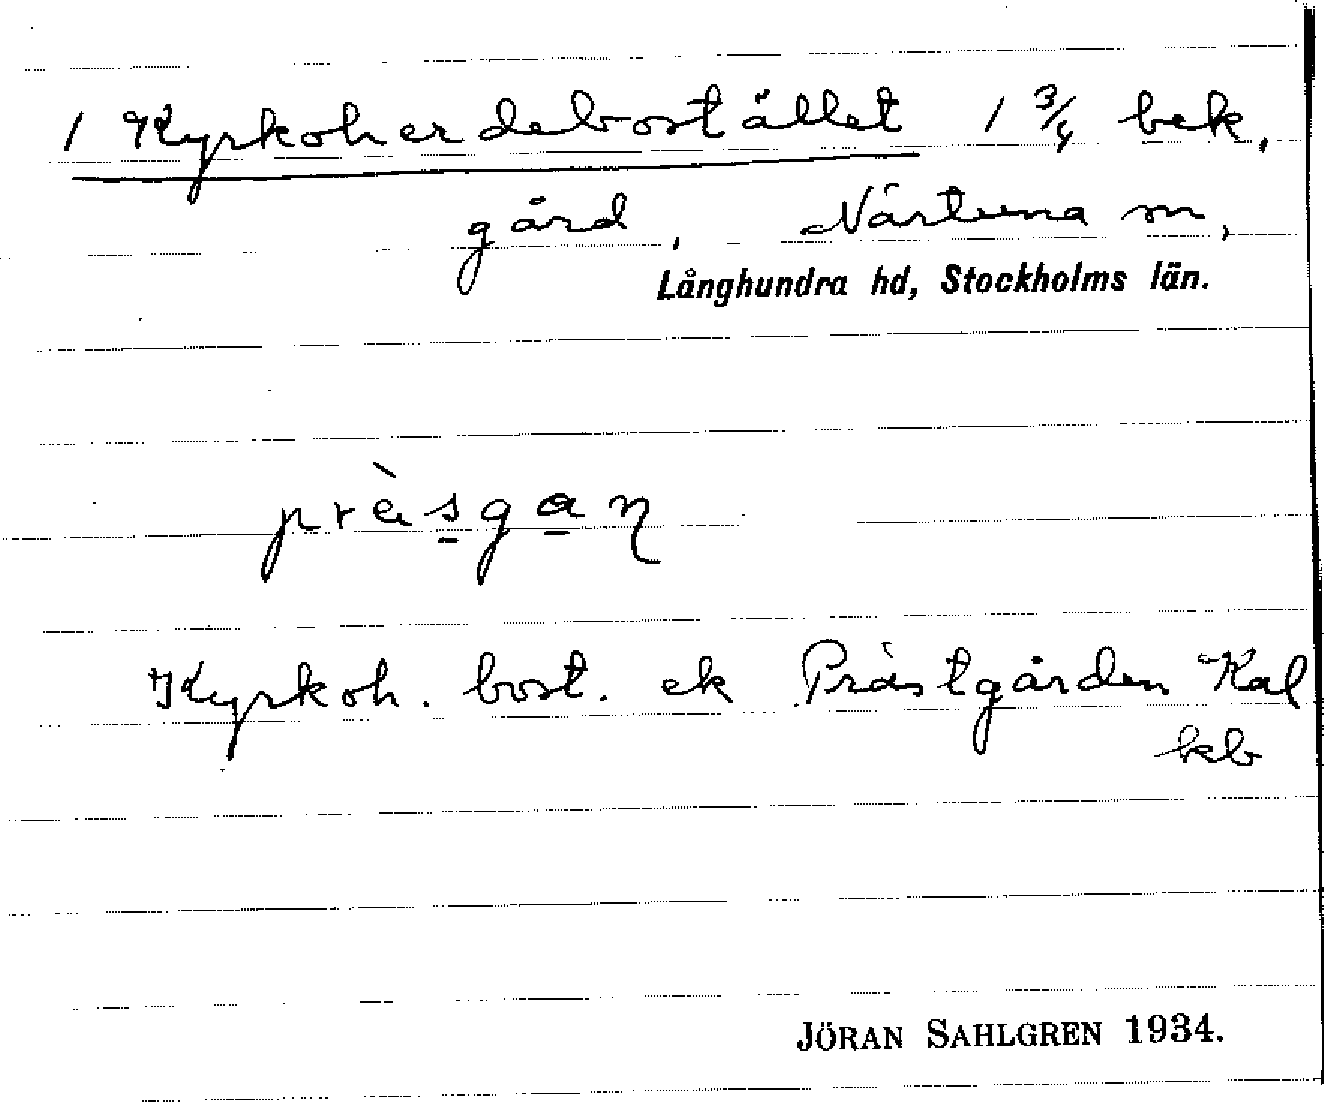 1 Kyrkoherdebostället 1 3/4 bek.
gård, Närtuna sn,
Långhundra hd, Stockholms län.
prä̀sgaɳ
Kyrkoh. bost. ek Prästgården Kal
kb
JÖRAN SAHLGREN 1934.